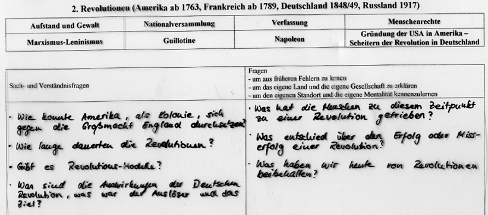 2. Revolutionen (Amerika ab 1763, Frankreich ab 1789, Deutschland 1848/49, Russland 1917)
Aufstand und Gewalt
Nationalversammlung
Verfassung
Menschenrechte
Marxismus-Leninismus
Guillotine
Napoleon
Gründung der USA in Amerika –
Scheitern der Revolution in Deutschland
Sach- und Verständnisfragen
• Wie konnte Amerika, als Kolonie, sich
gegen die Großmacht England durchsetzen?
• Wie lange dauerten die Revolutionen?
• Gibt es Revolutions-Modelle?
• Was sind die Auswirkungen der Deutschen
Revolution, was war der Auslöser und das
Ziel?
Fragen
- um aus früheren Fehlern zu lernen
- um das eigene Land und die eigene Gesellschaft zu erklären
- um den eigenen Standort und die eigene Mentalität kennenzulernen
• Was hat die Menschen zu diesem Zeitpunkt
zu einer Revolution getrieben?
• Was entschied über den Erfolg oder Miss-
erfolg einer Revolution?
• Was haben wir heute von Revolutionen
beibehalten?